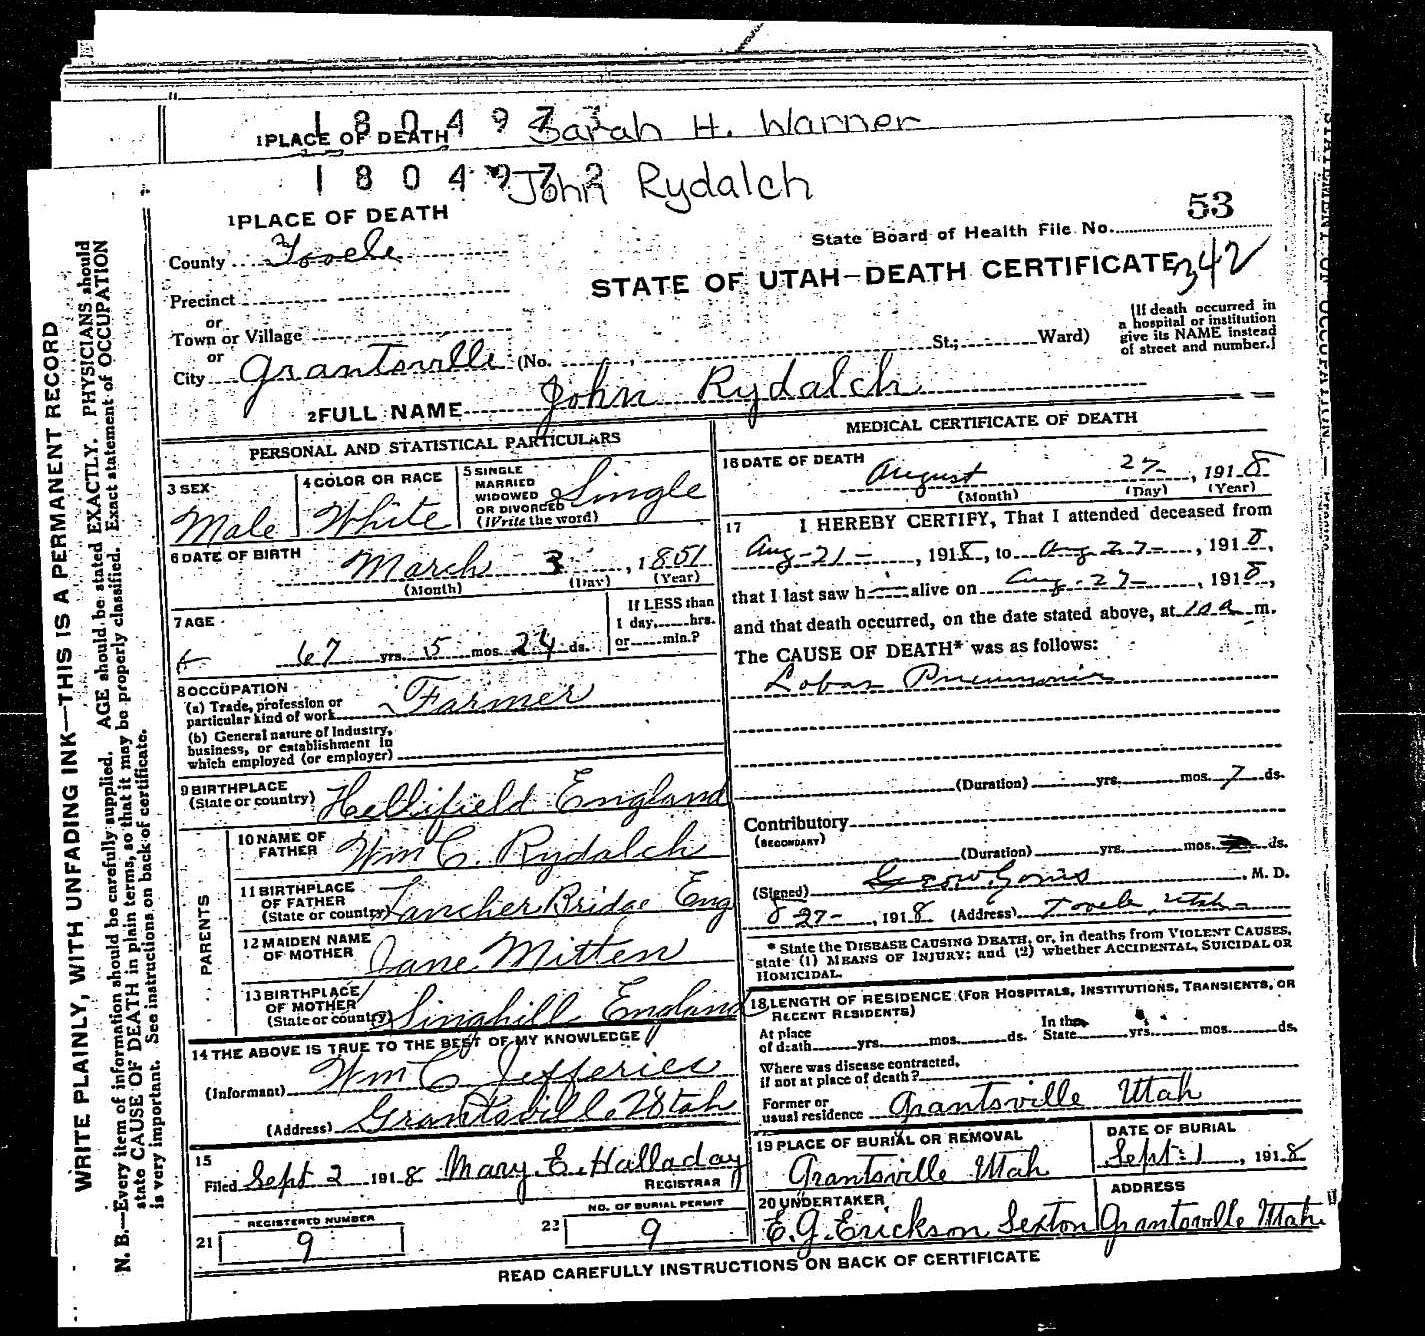 1 8 0 4 9 7
1 PLACE OF DEATH Sarah H. Warner
1 8 0 4 9 7 2
John Rydalch
1 PLACE OF DEATH
53
State Board of Health File No.
County Tooele
STATE OF UTAH—DEATH CERTIFICATE 342
Precinct
or
Town or Village
or
City Grantsville (No. St.; Ward)
[If death occurred in
a hospital or institution
give its NAME instead
of street and number.]
2 FULL NAME John Rydalch
PERSONAL AND STATISTICAL PARTICULARS
3 SEX
Male
4 COLOR OR RACE
White
5 SINGLE
MARRIED
WIDOWED
OR DIVORCED
(Write the word)
Single
6 DATE OF BIRTH
March 3, 1851
(Month) (Day) (Year)
7 AGE
67 yrs. 5 mos. 24 ds.
If LESS than
1 day, hrs.
or min.?
8 OCCUPATION
(a) Trade, profession or
particular kind of work Farmer
(b) General nature of Industry,
business, or establishment in
which employed (or employer)
9 BIRTHPLACE
(State or country) Hellifield England
PARENTS
10 NAME OF
FATHER Wm C. Rydalch
11 BIRTHPLACE
OF FATHER
(State or country) Lancher Bridge Eng
12 MAIDEN NAME
OF MOTHER Jane Mitten
13 BIRTHPLACE
OF MOTHER
(State or country) Singhill England
14 THE ABOVE IS TRUE TO THE BEST OF MY KNOWLEDGE
(Informant) Wm C Jefferies
(Address) Grantsville Utah
15
Filed Sept 2 1918 Mary E. Halladay
REGISTRAR
REGISTERED NUMBER
21 9
NO. OF BURIAL PERMIT
22 9
MEDICAL CERTIFICATE OF DEATH
16 DATE OF DEATH
August 27, 1918
(Month) (Day) (Year)
17 I HEREBY CERTIFY, That I attended deceased from
Aug-21-, 1918, to Aug 27-, 1918,
that I last saw h alive on Aug-27-, 1918,
and that death occurred, on the date stated above, at 10 a m.
The CAUSE OF DEATH* was as follows:
Lobar Pneumonia
(Duration) yrs. mos. 7 ds.
Contributory
(SECONDARY)
(Duration) yrs. mos. ds.
(Signed) , M. D.
8-27-, 1918 (Address) Tooele, Utah-
* State the DISEASE CAUSING DEATH, or, in deaths from VIOLENT CAUSES,
state (1) MEANS OF INJURY; and (2) whether ACCIDENTAL, SUICIDAL OR
HOMICIDAL.
18 LENGTH OF RESIDENCE (FOR HOSPITALS, INSTITUTIONS, TRANSIENTS, OR
RECENT RESIDENTS)
At place
of death yrs. mos. ds.
In the
State yrs. mos. ds.
Where was disease contracted,
if not at place of death?
Former or
usual residence Grantsville Utah
19 PLACE OF BURIAL OR REMOVAL
Grantsville Utah
DATE OF BURIAL
Sept. 1, 1918
20 UNDERTAKER
E. G. Erickson Sexton
ADDRESS
Grantsville Utah
READ CAREFULLY INSTRUCTIONS ON BACK OF CERTIFICATE
WRITE PLAINLY, WITH UNFADING INK—THIS IS A PERMANENT RECORD
N. B.—Every item of information should be carefully supplied. AGE should be stated EXACTLY. PHYSICIANS should
state CAUSE OF DEATH in plain terms, so that it may be properly classified. Exact statement of OCCUPATION
is very important. See instructions on back of certificate.